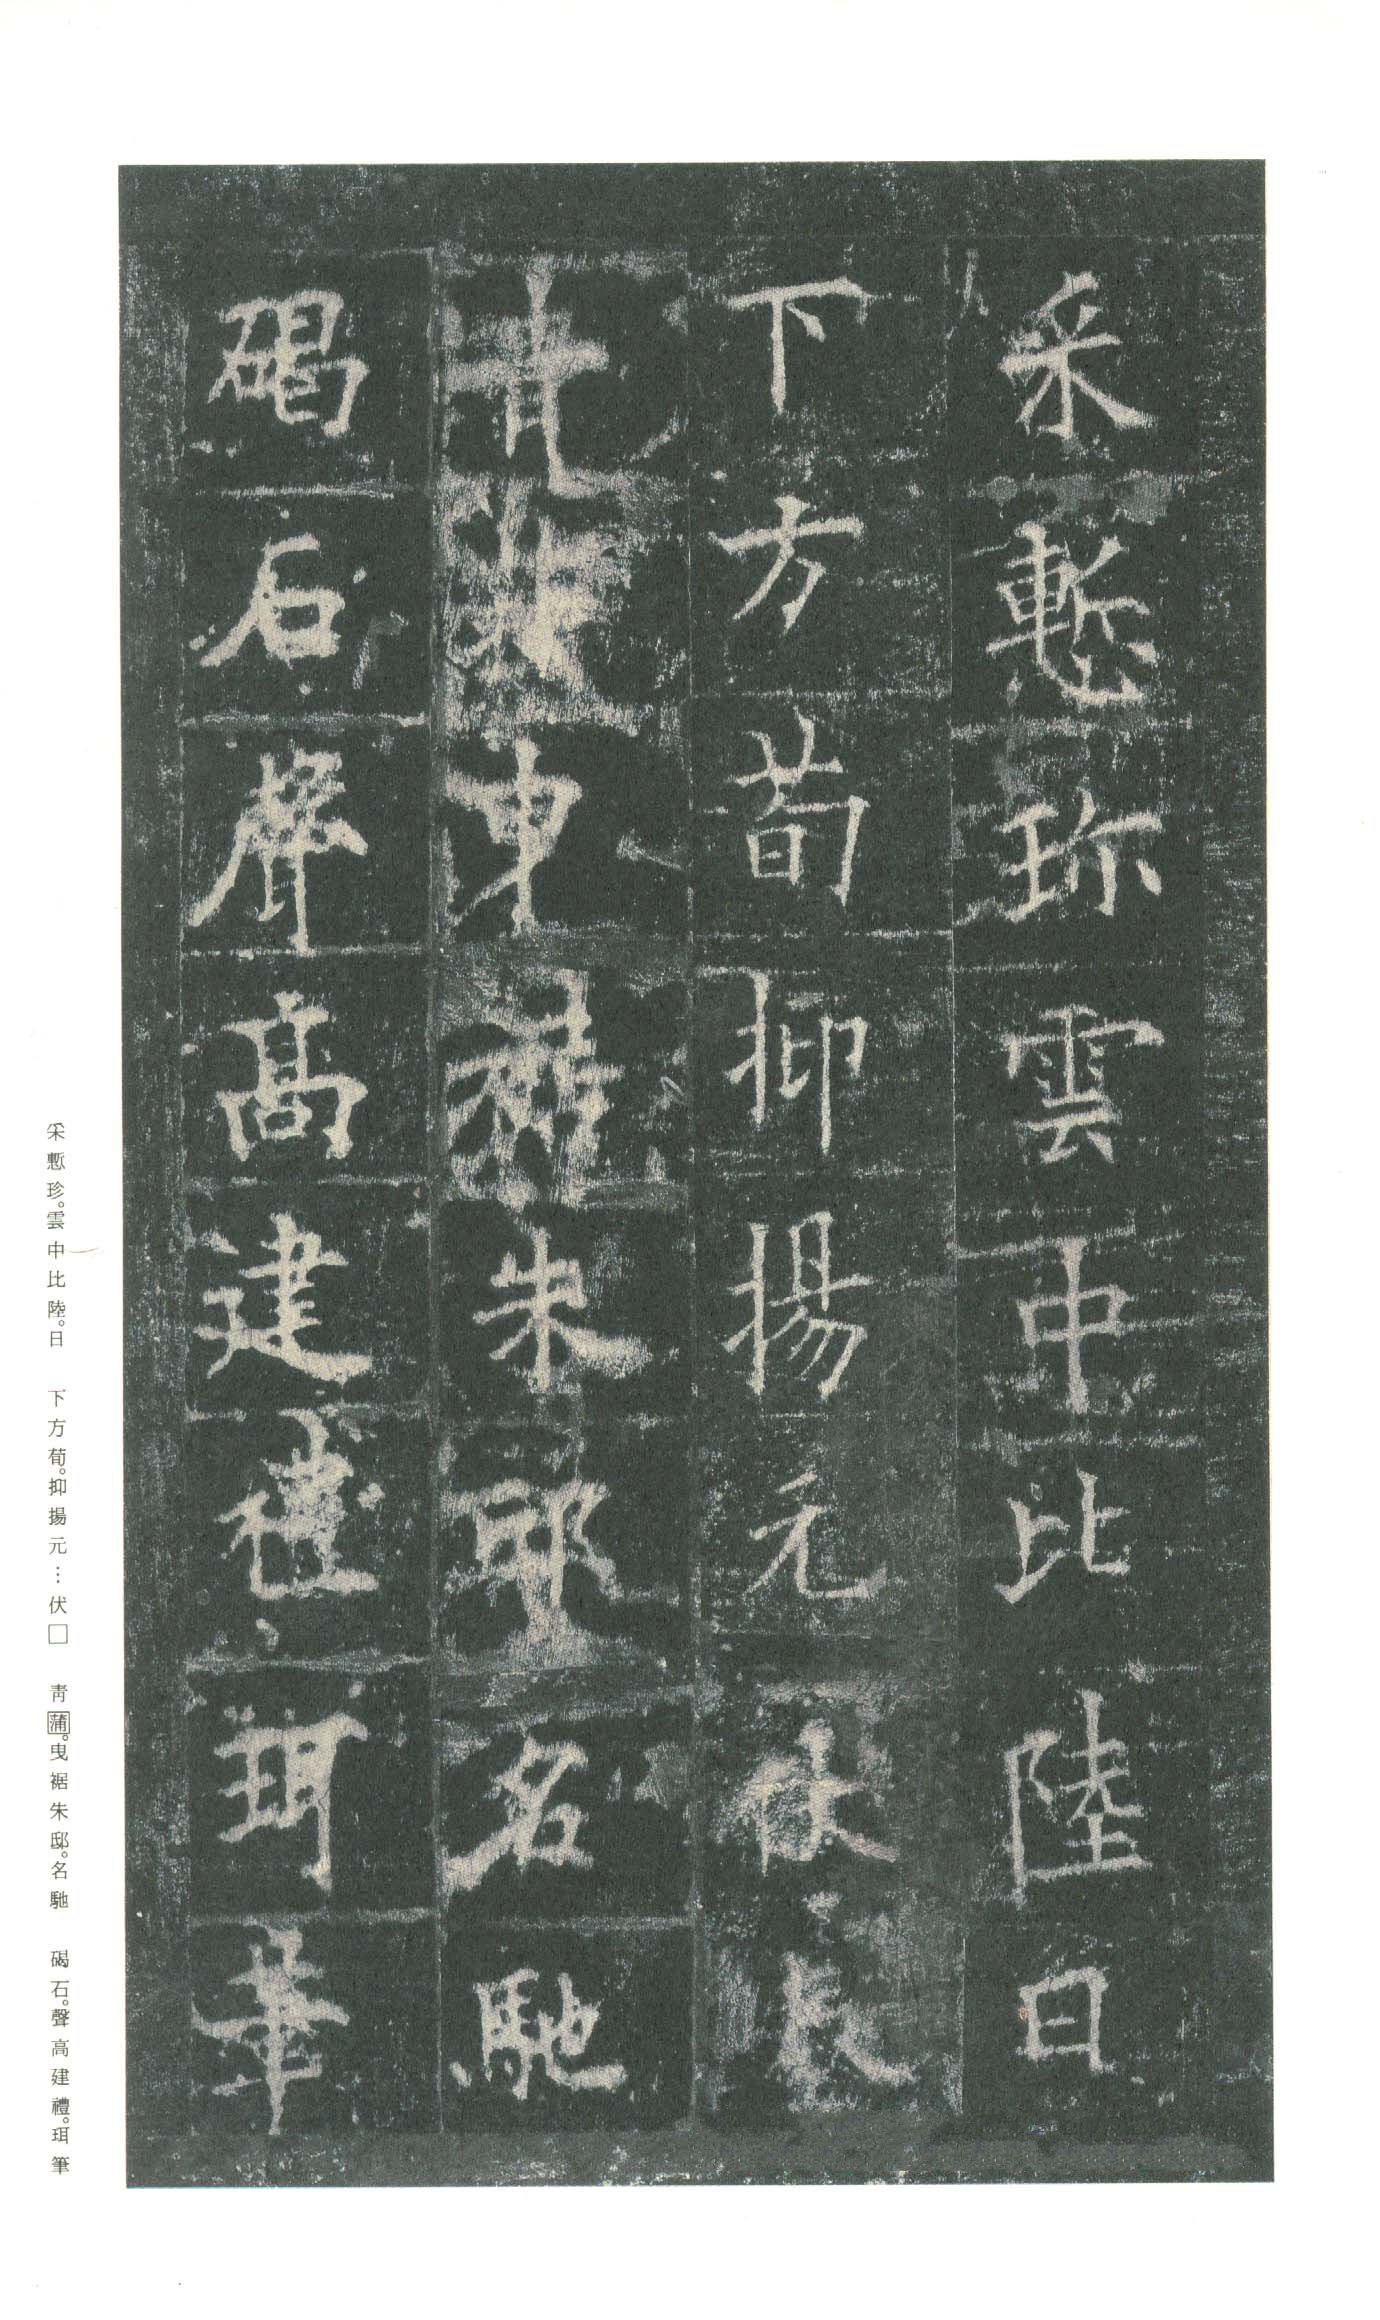 采慙珎雲中比陸日
下方荀抑揚元
青曳裾朱邸名馳
碣石聲高建禮珥筆
采慙珍。雲中比陸。日　下方荀。抑揚元…伏□　青蒲。曳裾朱邸。名馳　碣石。聲高建禮。珥筆